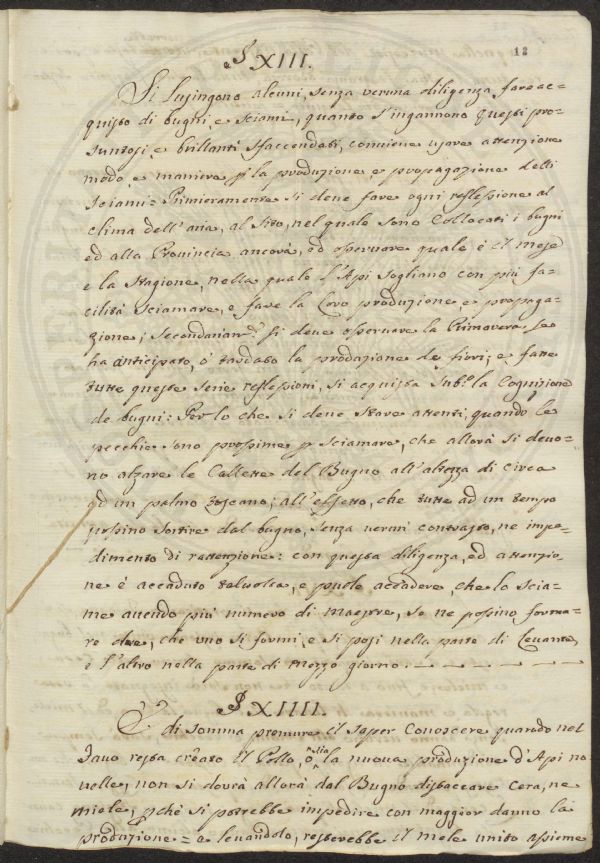 12
§ XIII.
Si Lusingono alcuni, senza veruna diligenza fare ac=
quisto di bugni, e sciami, quanto s'ingannono questi pro=
suntosi, e brillanti sfaccendati, conviene usare attenzione
modo, e maniera p la produzione, e propagazione delli
sciami = Primieramente si deve fare ogni reflessione al
clima dell'aria, al sito, nel quale sono Collocati i bugni
ed alla Provincia ancora, ed osservare quale è il mese
e la stagione, nella quale l'Api sogliano con più fa=
cilità sciamare, e fare la loro produzione, e propaga=
zione; secondariam.te si deve osservare la Primavera se
ha anticipato, o' tardato la produzione de fiori; e fatte
tutte queste serie reflessioni, si acquista sub.o la Cognizione
de bugni: Per lo che si deve stare attenti, quando le
pecchie sono prossime p sciamare, che allora si devo=
no alzare le Callette del Bugno all'altezza di circa
ad un palmo toscano; all'effetto, che tutte ad un tempo
possino sortire dal bugno, senza verun contrasto, ne impe=
dimento di rattenzione: con questa diligenza, ed attenzio=
ne è accaduto talvolta, e puole accadere, che lo scia=
me avendo più numero di maestre, se ne possino forma=
re due, che uno si formi, e si posi nella parte di Levante,
e l'altro nella parte di mezzo giorno.
§ XIIII.
E' di somma premura il saper Conoscere quando nel
favo resta creato il Pollo, o sia la nuova produzione d'Api no=
velle, non si dovrà allora dal Bugno distaccare cera, ne
miele, pchè si potrebbe impedire con maggior danno la
produzione = a levandolo, resterebbe il mele unito assieme